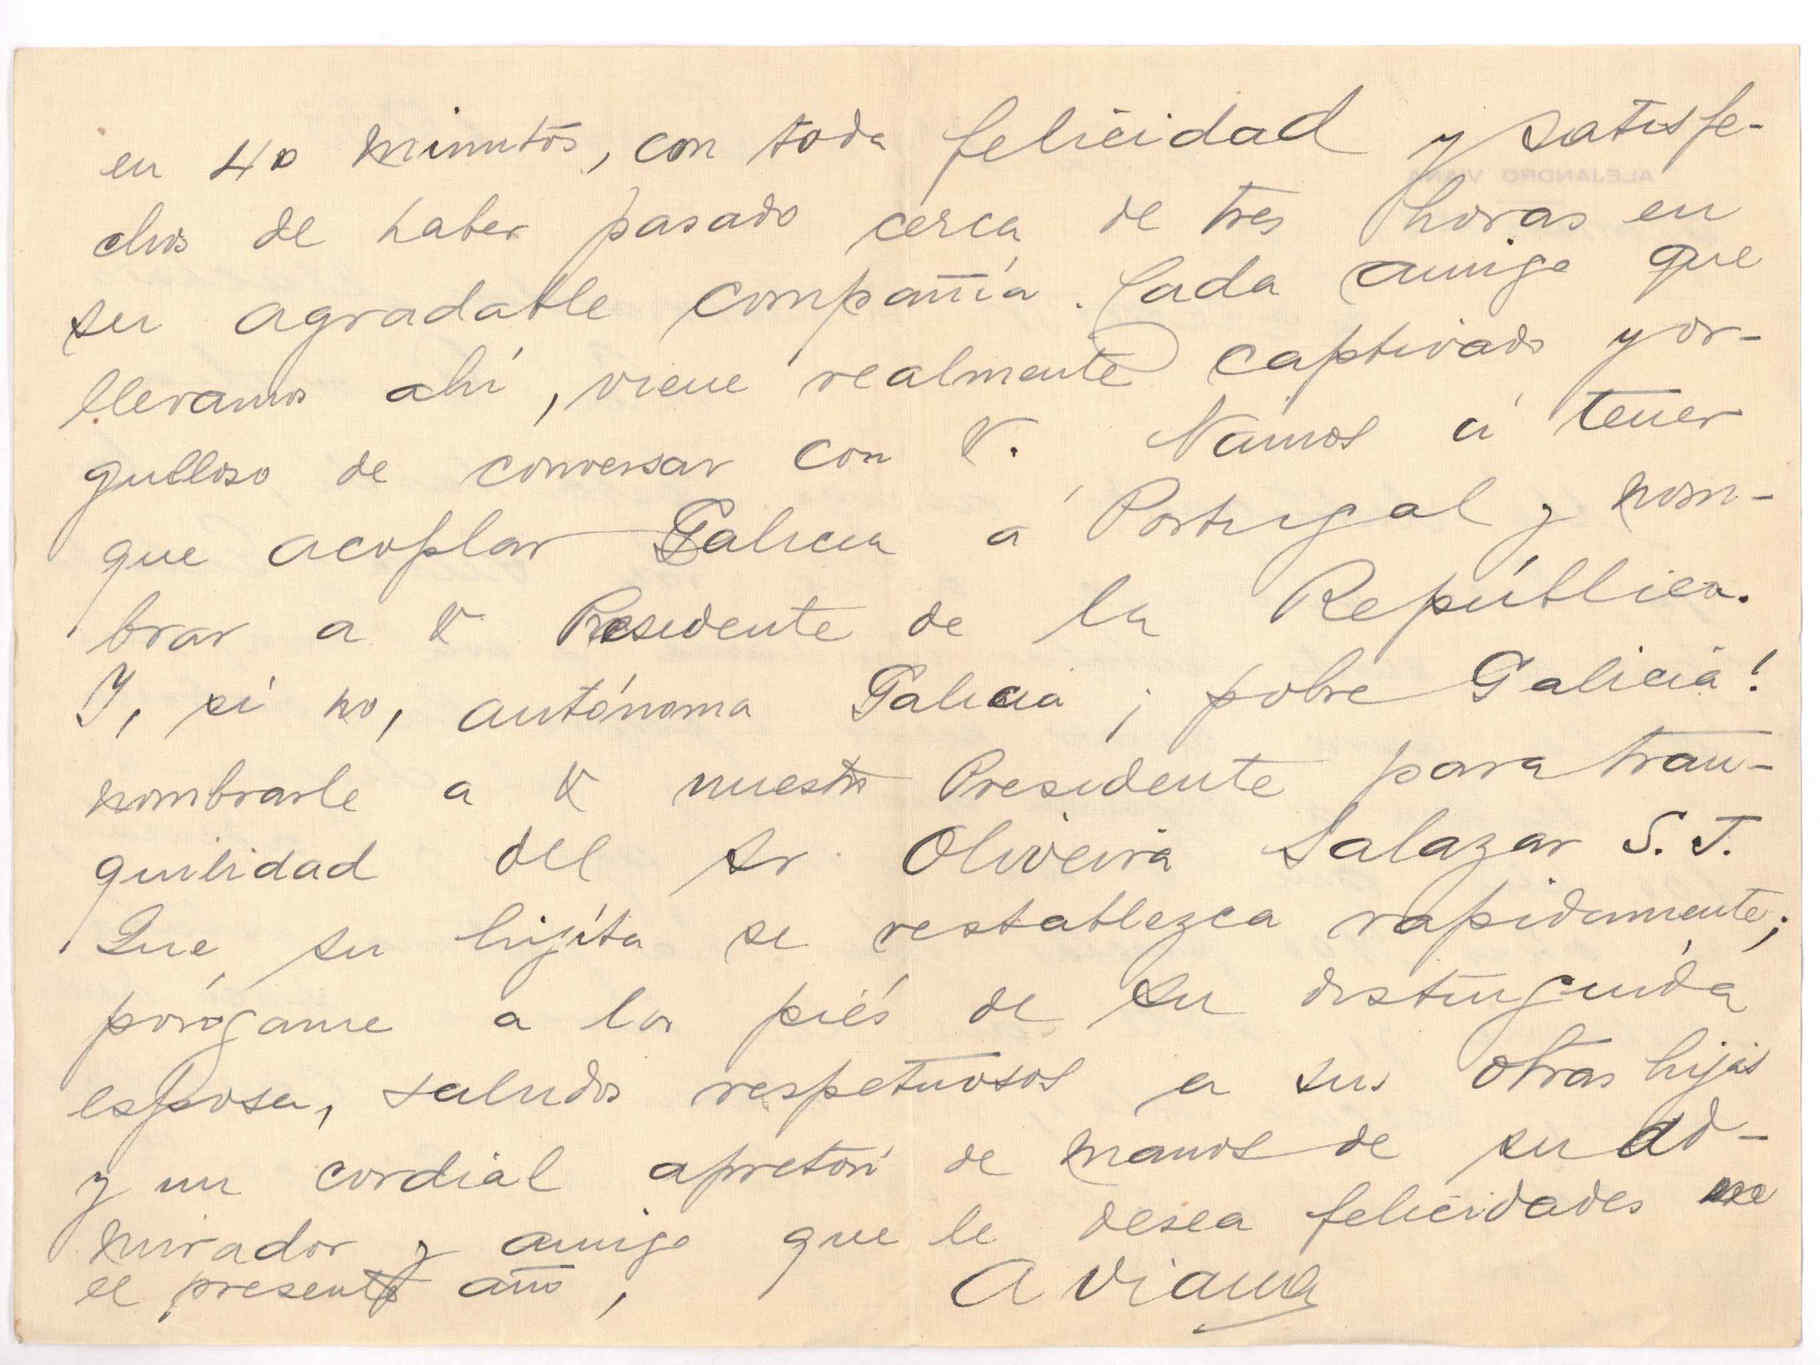 en 40 minutos, con toda felicidad y satisfe-
chos de haber pasado cerca de tres horas en
su agradable compañía. Cada amigo que
llevamos ahí, viene realmente captivado y or-
gulloso de conversar con V. Vamos á tener
que acoplar Galicia á Portugal y nom-
brar a V Presidente de la República.
Y, si no, autónoma Galicia ¡pobre Galicia!
nombrarle a V nuestro Presidente para tran-
quilidad del Sr Oliveira Salazar S. J.
Que su hijita se restablezca rapidamente;
pórgame a los piés de su distinguida
esposa, saludos respetuosos a sus otras hijas
y un cordial apretón de manos de su ad-
mirador y amigo que le desea felicidades en
el presente año,
A Viana
ALEJANDRO VIANA